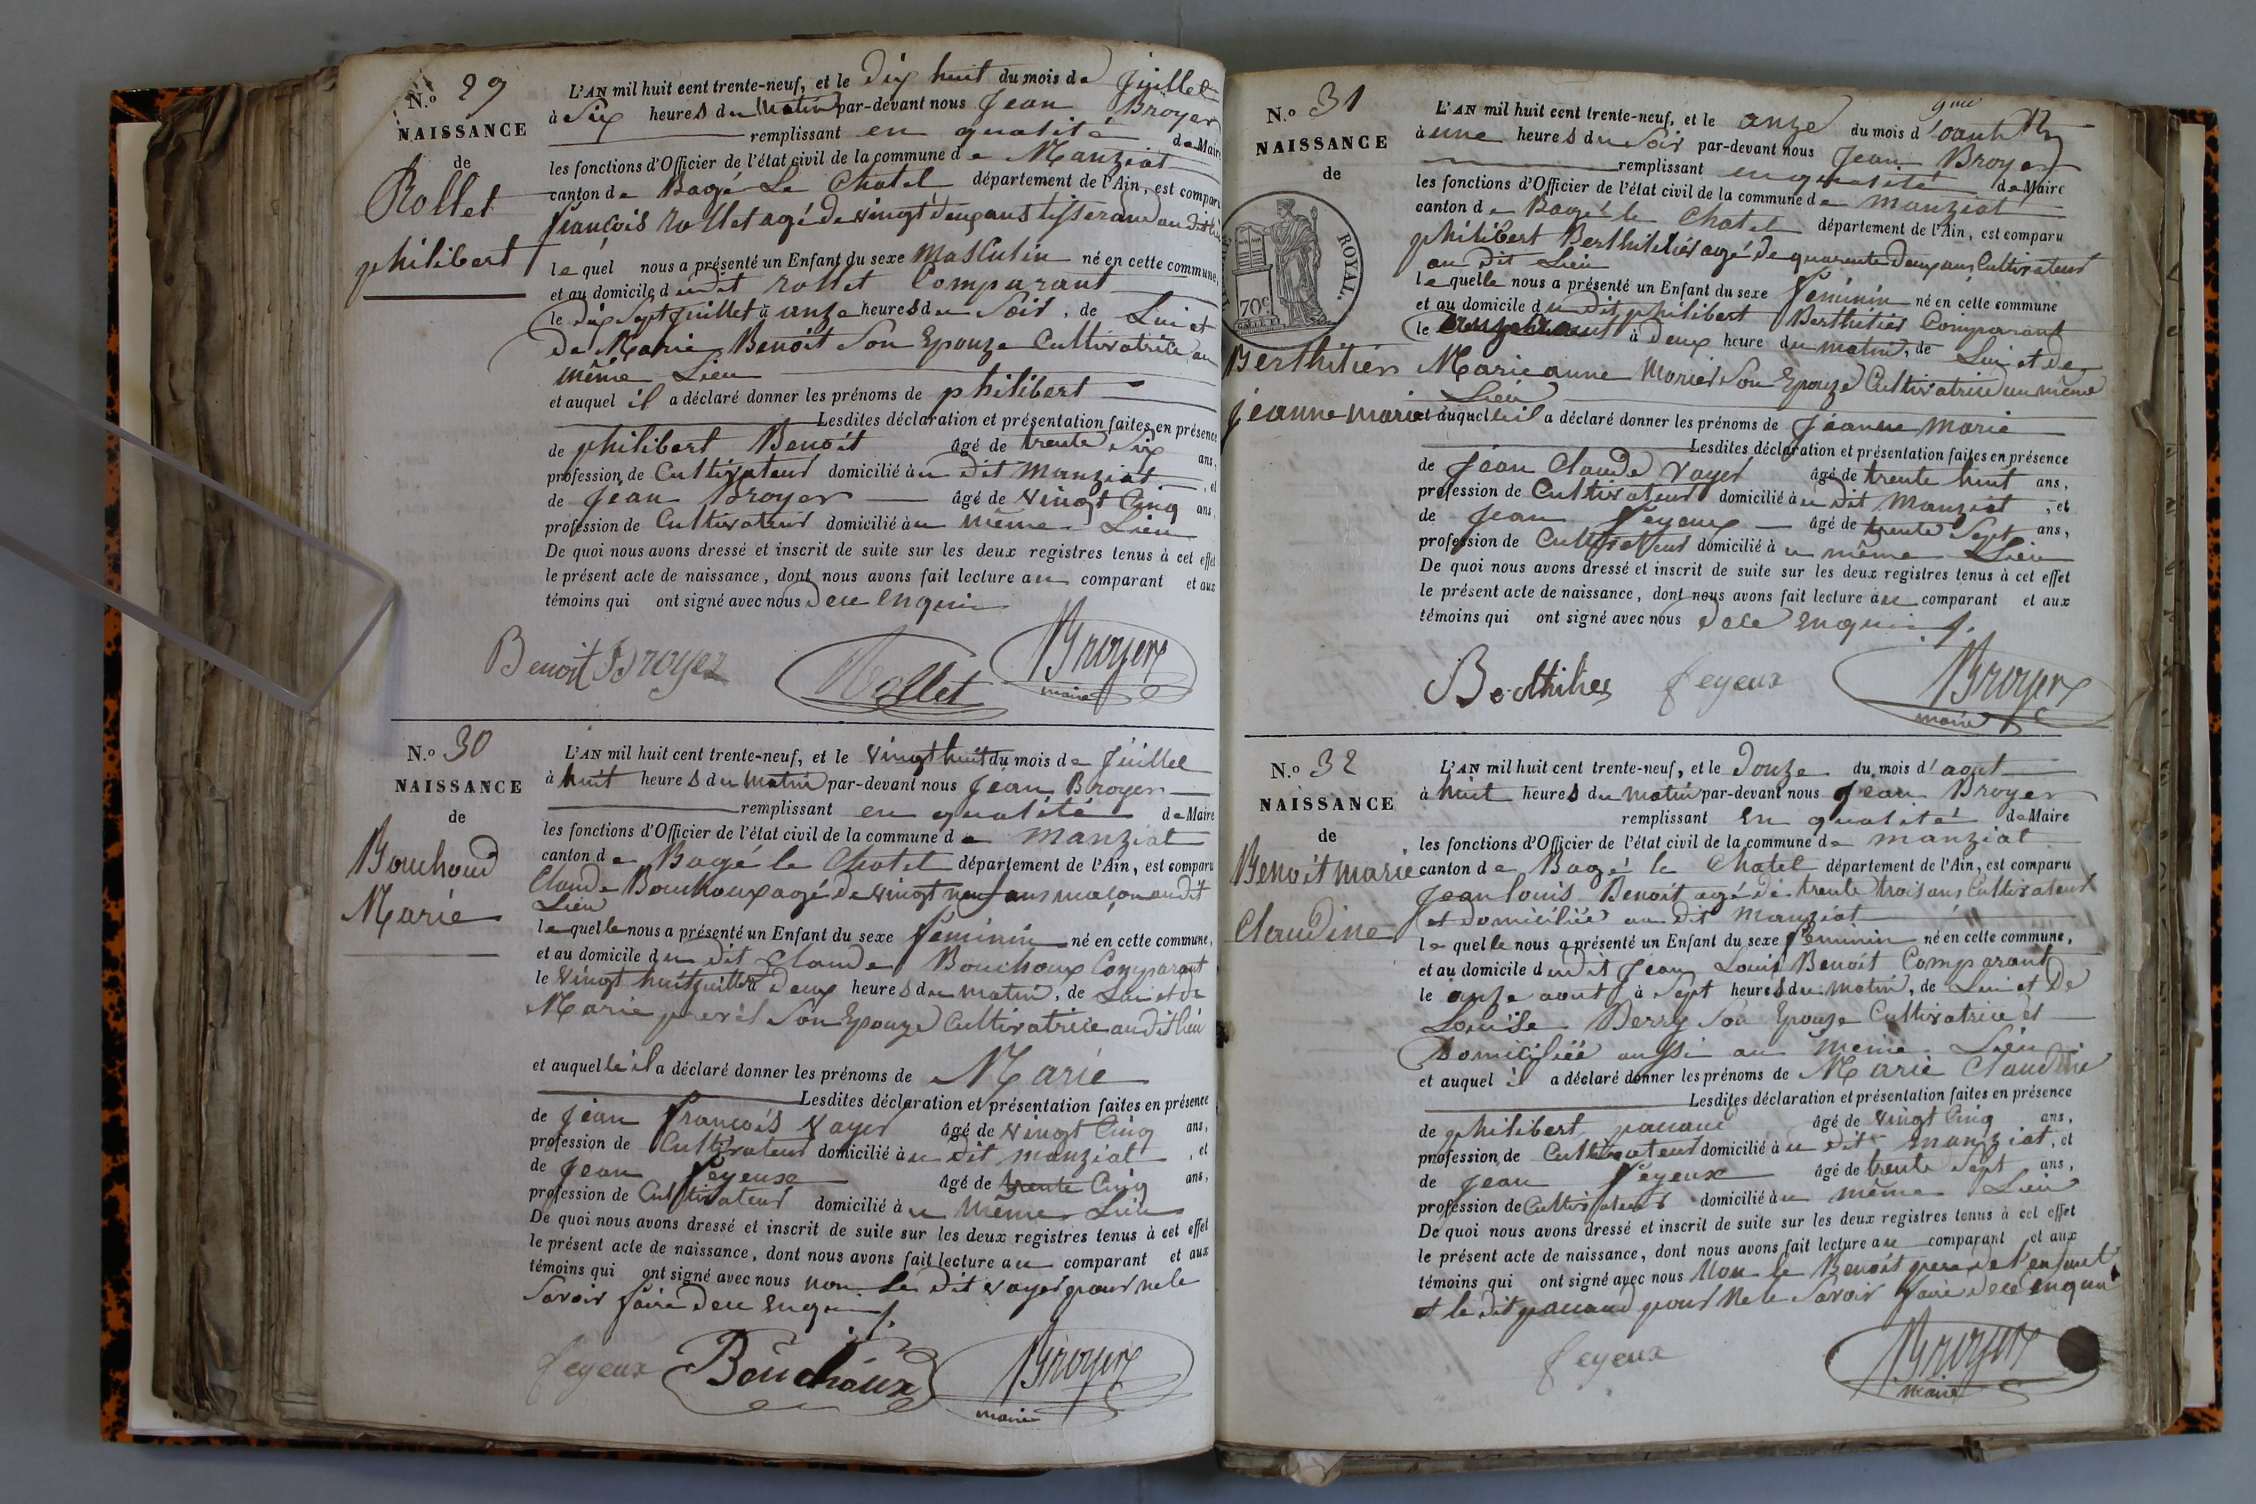 N.o 29
NAISSANCE
de
Rollet
philibert
L'AN mil huit cent trente-neuf, et le Dix huit du mois de Juillet
à Six heures du Matin par-devant nous Jean Broyer
remplissant en qualité de Maire
les fonctions d'Officier de l'état civil de la commune de Manziat
canton de Bagé Le Chatel département de l'Ain, est comparu
françois rollet agé de vingt deux ans tisserand au dit lieu
le quel nous a présenté un Enfant du sexe Masculin né en cette commune,
et au domicile du dit rollet Comparant
le dix Sept Juillet à onze heures du Soir, de Lui et
De Marie Benoît Son Epouze Cultivatrice au
même Lieu
et auquel il a déclaré donner les prénoms de philibert
Lesdites déclaration et présentation faites en présence
de philibert Benoit âgé de trente Six ans,
profession de Cultivateur domicilié au dit Manziat, et
de Jean Broyer âgé de vingt Cinq ans,
profession de Cultivateur domicilié au même Lieu
De quoi nous avons dressé et inscrit de suite sur les deux registres tenus à cet effet
le présent acte de naissance, dont nous avons fait lecture au comparant et aux
témoins qui ont signé avec nous de ce enquis
Benoit Broyer Rollet Broyer
maire
N.o 30
NAISSANCE
de
Bouchoud
Marie
L'AN mil huit cent trente-neuf, et le vingt huit du mois de Juillet
à huit heures du matin par-devant nous Jean Broyer
remplissant en qualité de Maire
les fonctions d'Officier de l'état civil de la commune de manziat
canton de Bagé le Chatel département de l'Ain, est comparu
Claude Bouchoux agé de vingt neuf ans maçon au dit
Lieu
le quelle nous a présenté un Enfant du sexe feminin né en cette commune,
et au domicile du dit Claude Bouchoux Comparant
le vingt huit juillet à deux heures du matin, de Lui et de
Marie Son Epouze Cultivatrice au dit lieu
et auquelle il a déclaré donner les prénoms de Marie
Lesdites déclaration et présentation faites en présence
de Jean françois vayer âgé de vingt Cinq ans,
profession de Cultivateur domicilié au dit manziat, et
de Jean feyeux âgé de trente Cinq ans,
profession de Cultivateur domicilié à u même Lieu
De quoi nous avons dressé et inscrit de suite sur les deux registres tenus à cet effet
le présent acte de naissance, dont nous avons fait lecture au comparant et aux
témoins qui ont signé avec nous non Le dit vayer pour ne le
Savoir faire de ce enquis
feyeux Bouchoux Broyer
maire
N.o 31
NAISSANCE
de
ROYAL.
70 c.
Berthilier
jeanne marie
L'AN mil huit cent trente-neuf, et le onze du mois d'oaut
à une heures du Soir par-devant nous Jean Broyer
remplissant en qualité de Maire
les fonctions d'Officier de l'état civil de la commune de manziat
canton de Bagé le Chatel département de l'Ain, est comparu
philibert Berthilier agé de quarente deux ans Cultivateur
au dit Lieu
le quelle nous a présenté un Enfant du sexe feminin né en cette commune
et au domicile du dit philibert Berthilier Comparant
le à deux heure du matin, de Lui et de
Marieanne Son Epouze Cultivatrice au même
Lieu
et auquelle il a déclaré donner les prénoms de Jeanne marie
Lesdites déclaration et présentation faites en présence
de Jean Claude vayer âgé de trente huit ans,
profession de Cultivateur domicilié au dit manziat, et
de Jean feyeux âgé de trente Sept ans,
profession de Cultivateur domicilié à u même Lieu
De quoi nous avons dressé et inscrit de suite sur les deux registres tenus à cet effet
le présent acte de naissance, dont nous avons fait lecture au comparant et aux
témoins qui ont signé avec nous de ce enquis
feyeux Broyer
maire
N.o 32
NAISSANCE
de
Benoit marie
Claudine
L'AN mil huit cent trente-neuf, et le Douze du mois d'aout
à huit heures du matin par-devant nous Jean Broyer
remplissant en qualité de Maire
les fonctions d'Officier de l'état civil de la commune de manziat
canton de Bagé le Chatel département de l'Ain, est comparu
Jean louis Benoit agé de trente trois ans Cultivateur
et domicilié au dit manziat
le quelle nous a présenté un Enfant du sexe feminin né en cette commune,
et au domicile du dit Jean Louis Benoit Comparant
le onze aout à Sept heures du matin, de Lui et De
Louise Derry Son Epouze Cultivatrice et
Domiciliée aussi au meme Lieu
et auquel il a déclaré donner les prénoms de Marie Claudine
Lesdites déclaration et présentation faites en présence
de philibert pauand âgé de vingt Cinq ans,
profession de Cultivateur domicilié au dit manziat, et
de Jean feyeux âgé de trente Sept ans,
profession de Cultivateur domicilié au même Lieu
De quoi nous avons dressé et inscrit de suite sur les deux registres tenus à cet effet
le présent acte de naissance, dont nous avons fait lecture au comparant et aux
témoins qui ont signé avec nous Non le Benoit pere de l'enfant
et le dit pauand pour ne le Savoir faire de ce enquis
feyeux Broyer
maire